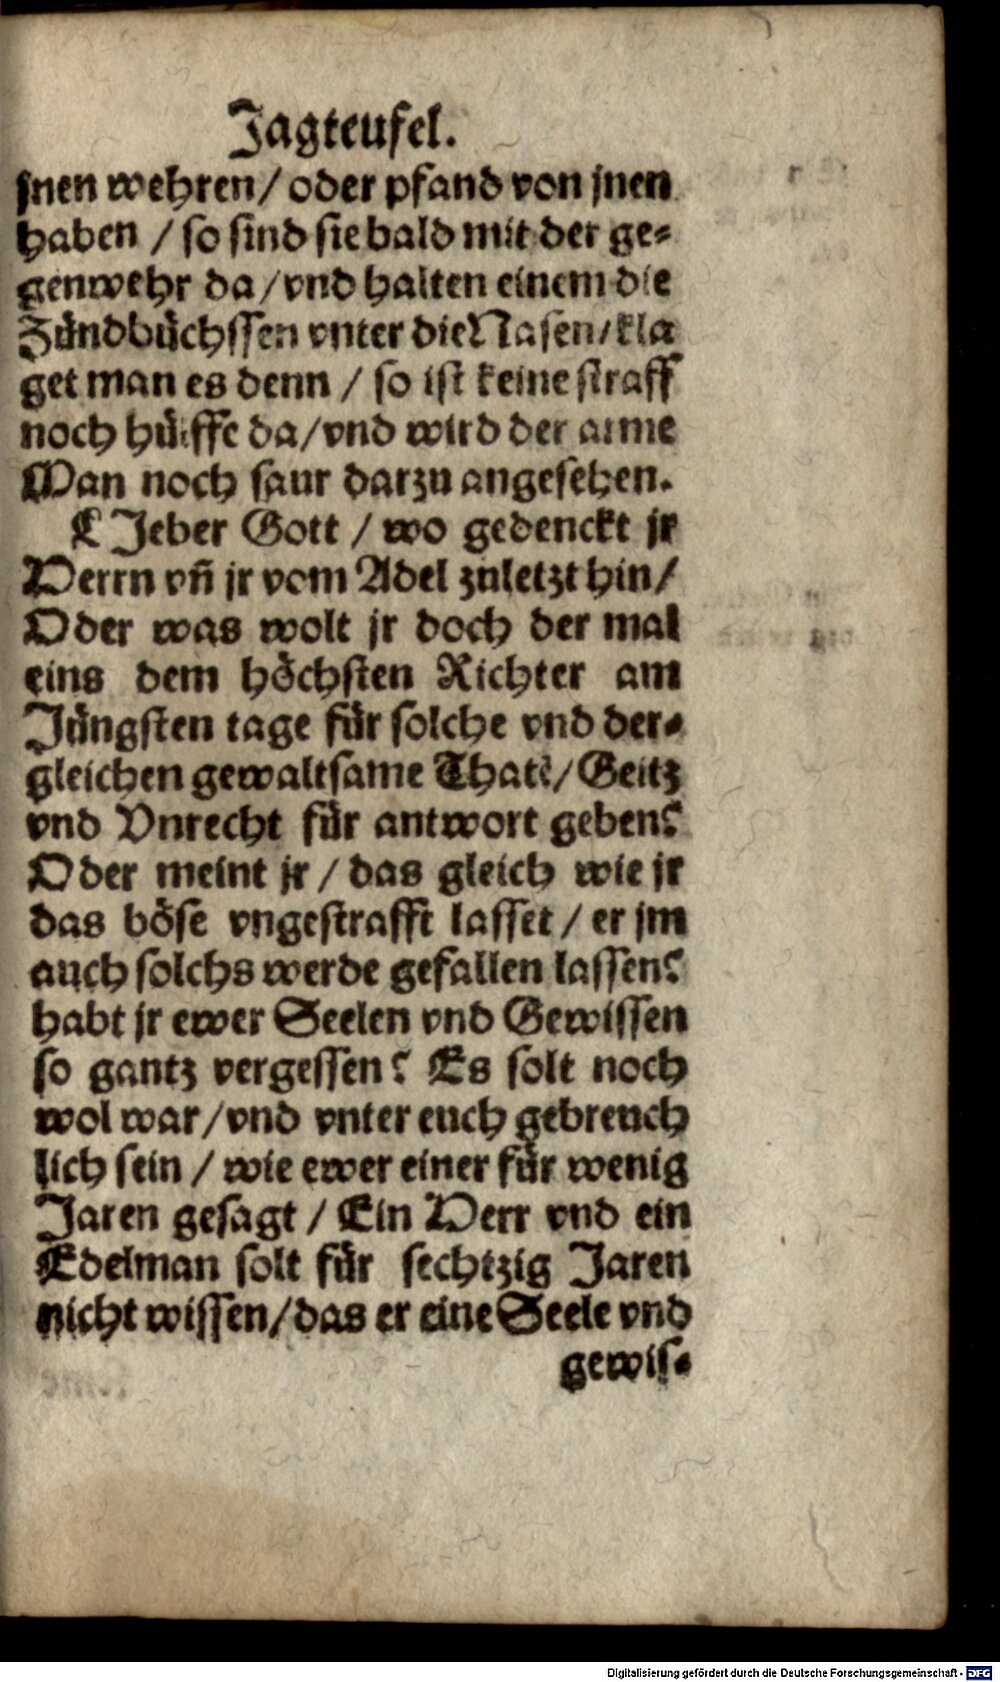 Jagteufel.
jnen wehren / oder pfand von jnen
haben / so sind sie bald mit der ge⸗
genwehr da / vnd halten einem die
Zündbüchssen vnter die Nasen / kla
get man es denn / so ist keine straff
noch hülffe da / vnd wird der arme
Man noch saur darzu angesehen.
LJeber Gott / wo gedenckt jr
Herrn vn̄ jr vom Adel zuletzt hin /
Oder was wolt jr doch der mal
eins dem höchsten Richter am
Jüngsten tage für solche vnd der⸗
gleichen gewaltsame Thatē / Geitz
vnd Vnrecht für antwort geben?
Oder meint jr / das gleich wie jr
das böse vngestrafft lasset / er jm
auch solchs werde gefallen lassen?
habt jr ewer Seelen vnd Gewissen
so gantz vergessen? Es solt noch
wol war / vnd vnter euch gebreuch
lich sein / wie ewer einer für wenig
Jaren gesagt / Ein Herr vnd ein
Edelman solt für sechtzig Jaren
nicht wissen / das er eine Seele vnd
gewis⸗
Digitalisierung gefördert durch die Deutsche Forschungsgemeinschaft - DFG